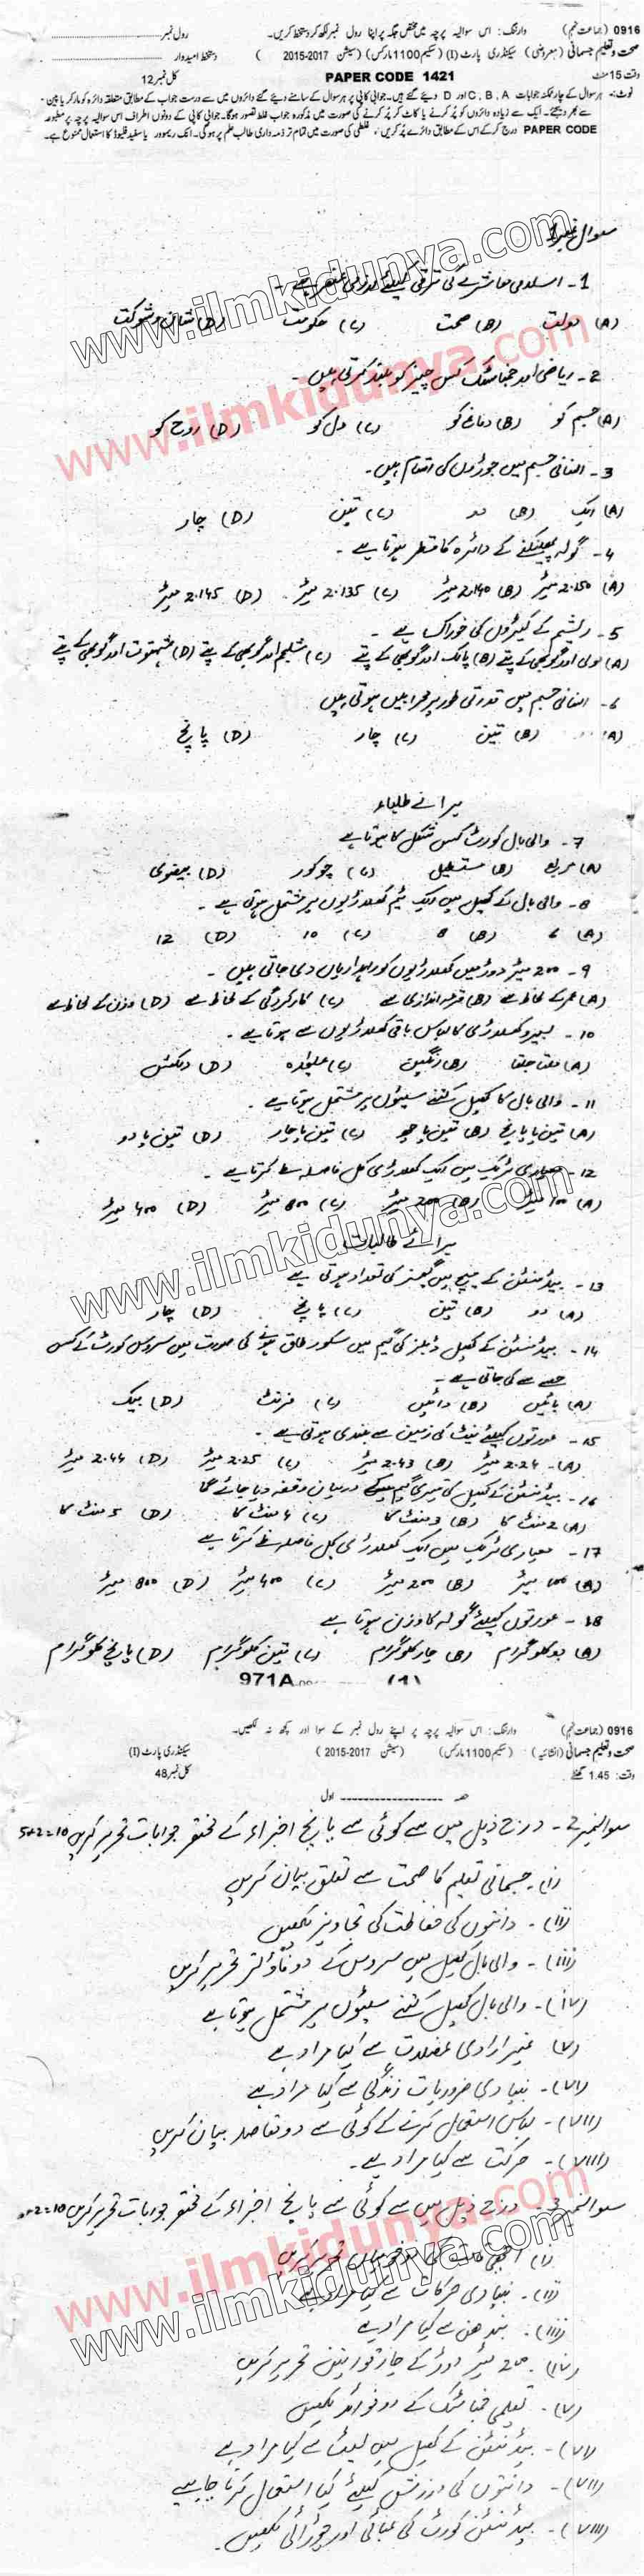 0916 (جماعت نہم) وارننگ: اس سوالیہ پرچہ میں مختص جگہ پر اپنا رول نمبر لکھ کر دستخط کریں۔ رول نمبر
صحت و تعلیم جسمانی (معروضی) سیکنڈری پارٹ (I) (سکیم 1100 مارکس) (سیشن 2015-2017) دستخط امیدوار
وقت 15 منٹ PAPER CODE 1421 کل نمبر 12
نوٹ:- ہر سوال کے چار ممکنہ جوابات A، B، C اور D دیئے گئے ہیں۔ جوابی کاپی پر ہر سوال کے سامنے دیئے گئے دائروں میں سے درست جواب کے مطابق متعلقہ دائرہ کو مارکر یا پین
سے بھر دیجئے۔ ایک سے زیادہ دائروں کو پُر کرنے یا کاٹ کر پُر کرنے کی صورت میں مذکورہ جواب غلط تصور ہوگا۔ جوابی کاپی کے دونوں اطراف اس سوالیہ پرچہ پر مطبوعہ
PAPER CODE درج کر کے اس کے مطابق دائرے پُر کریں، غلطی کی صورت میں تمام تر ذمہ داری طالب علم پر ہوگی۔ انک ریموور یا سفید فلیوڈ کا استعمال ممنوع ہے۔
سوال نمبر 1
1- اسلامی معاشرے کی ترقی کیلئے لازمی عنصر ہے
(A) دولت (B) صحت (C) حکومت (D) شان و شوکت
2- ریاضی اور جمناسٹک کس چیز کو بلند کرتی ہیں۔
(A) جسم کو (B) دماغ کو (C) دل کو (D) روح کو
3- انسانی جسم میں جوڑوں کی اقسام ہیں۔
(A) ایک (B) دو (C) تین (D) چار
4- گولہ پھینکنے کے دائرہ کا قطر ہوتا ہے۔
(A) 2.150 میٹر (B) 2.140 میٹر (C) 2.135 میٹر (D) 2.145 میٹر
5- ریشم کے کیڑوں کی خوراک ہے۔
(A) مولی اور گوبھی کے پتے (B) پالک اور گوبھی کے پتے (C) شلجم اور گوبھی کے پتے (D) شہتوت اور گوبھی کے پتے
6- انسانی جسم میں قدرتی طور پر محرابیں ہوتی ہیں
(A) دو (B) تین (C) چار (D) پانچ
برائے طلباء
7- والی بال کورٹ کس شکل کا ہوتا ہے
(A) مربع (B) مستطیل (C) چوکور (D) بیضوی
8- والی بال کے کھیل میں ایک ٹیم کھلاڑیوں پر مشتمل ہوتی ہے۔
(A) 6 (B) 8 (C) 10 (D) 12
9- 200 میٹر دوڑ میں کھلاڑیوں کو راہداریاں دی جاتی ہیں۔
(A) عمر کے لحاظ سے (B) قرعہ اندازی سے (C) کارکردگی کے لحاظ سے (D) وزن کے لحاظ سے
10- لبیرو کھلاڑی کا لباس باقی کھلاڑیوں سے ہوتا ہے۔
(A) ملتا جلتا (B) رنگین (C) علیحدہ (D) دلکش
11- والی بال کا کھیل کتنے سیٹوں پر مشتمل ہوتا ہے۔
(A) تین یا پانچ (B) تین یا چھ (C) تین یا چار (D) تین یا دو
12- معیاری ٹریک میں ایک کھلاڑی کل فاصلہ طے کرتا ہے۔
(A) 100 میٹر (B) 200 میٹر (C) 800 میٹر (D) 400 میٹر
برائے طالبات
13- بیڈمنٹن کے میچ میں گیمز کی تعداد ہوتی ہے
(A) دو (B) تین (C) پانچ (D) چار
14- بیڈمنٹن کے کھیل ڈبلز کی گیم میں سکور طاق ہونے کی صورت میں سروس کورٹ کے کس
حصے سے کی جاتی ہے۔
(A) بائیں (B) دائیں (C) فرنٹ (D) بیک
15- عورتوں کیلئے نیٹ کی زمین سے بلندی ہوتی ہے۔
(A) 2.24 میٹر (B) 2.43 میٹر (C) 2.25 میٹر (D) 2.44 میٹر
16- بیڈمنٹن کے کھیل کی تیسری گیم کے درمیان وقفہ دیا جائے گا
(A) 2 منٹ کا (B) 3 منٹ کا (C) 4 منٹ کا (D) 5 منٹ کا
17- معیاری ٹریک میں ایک کھلاڑی کل فاصلہ طے کرتا ہے
(A) 100 میٹر (B) 200 میٹر (C) 400 میٹر (D) 800 میٹر
18- عورتوں کیلئے گولہ کا وزن ہوتا ہے
(A) دو کلوگرام (B) چار کلوگرام (C) تین کلوگرام (D) پانچ کلوگرام
971A (1)
0916 (جماعت نہم) وارننگ: اس سوالیہ پرچہ پر اپنے رول نمبر کے سوا اور کچھ نہ لکھیں۔
صحت و تعلیم جسمانی (انشائیہ) (سکیم 1100 مارکس) (سیشن 2015-2017) سیکنڈری پارٹ (I)
وقت: 1.45 گھنٹے کل نمبر 48
حصہ اول
سوالنمبر 2- درج ذیل میں سے کوئی سے پانچ اجزاء کے مختصر جوابات تحریر کریں 5×2=10
(i)- جسمانی تعلیم کا صحت سے تعلق بیان کریں
(ii)- دانتوں کی حفاظت کی تجاویز لکھیں
(iii)- والی بال کھیل میں سروس کے دو فاؤلز تحریر کریں
(iv)- والی بال کھیل کتنے سیٹوں پر مشتمل ہوتا ہے
(v) غیر ارادی عضلات سے کیا مراد ہے
(vi)- بنیادی ضروریات زندگی سے کیا مراد ہے
(vii)- لباس استعمال کرنے کے کوئی سے دو مقاصد بیان کریں
(viii)- حرکت سے کیا مراد ہے۔
سوالنمبر 3- درج ذیل میں سے کوئی سے پانچ اجزاء کے مختصر جوابات تحریر کریں 5×2=10
(i) اچھی کی دو خوبیاں تحریر کریں
(ii)- بنیادی حرکات سے کیا مراد ہے
(iii)- بندھن سے کیا مراد ہے
(iv)- 200 میٹر دوڑ کے چار قوانین تحریر کریں
(v)- تعلیمی جمناسٹک کے دو فوائد لکھیں
(vi)- بیڈمنٹن کے کھیل میں لیٹ سے کیا مراد ہے
(vii)- دانتوں کی ورزش کیلئے کیا استعمال کرنا چاہیے
(viii)- بیڈمنٹن کورٹ کی لمبائی اور چوڑائی لکھیں۔
www.ilmkidunya.com
www.ilmkidunya.com
www.ilmkidunya.com
www.ilmkidunya.com
www.ilmkidunya.com